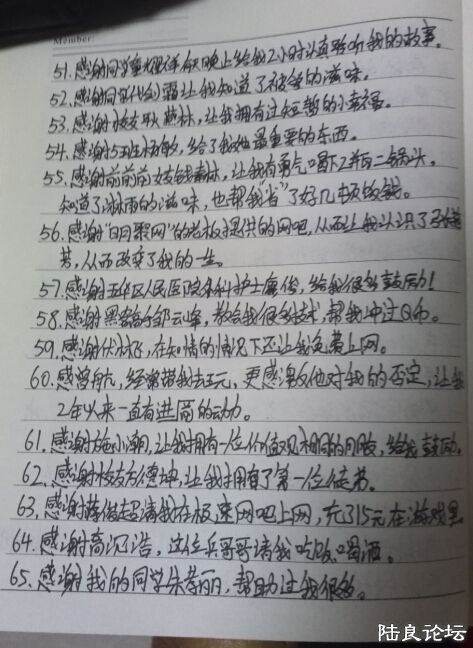 Member:
51.感谢同学 晚上给我2小时认真聆听我的故事。
52.感谢同 让我知道了被 的滋味。
53.感谢校友耿 林,让我拥有过短暂的小幸福。
54.感谢5班杨 ,给了我她最重要的东西。
55.感谢前前前女友钱 林,让我有勇气喝下2瓶二锅头。
知道了淋雨的滋味,也帮我“省”了好几顿饭钱。
56.感谢“明聚网”的老板提供的网吧,从而让我认识了
芳,从而改变了我的一生。
57.感谢五华区人民医院 科护士 俊,给我很多鼓励!
58.感谢黑客高手邹云峰,教会我很多技术,帮我冲过Q币。
59.感谢伏 飞,在知情的情况下还让我免费上网。
60.感曾航,经常带我去玩,更感激他对我的否定,让我
2年以来一直有进步的动力。
61.感谢施小潮,让我拥有一位价值观相同的朋友,给我鼓励。
62.感谢校友方德坤,让我拥有了第一位徒弟。
63.感谢蒋 超请我在极速网吧上网,充了15元在游戏里
64.感谢高沉浩,这位兵哥哥请我吃饭喝酒。
65.感谢我的同学朱孝丽,帮助过我很多。
陆良论坛